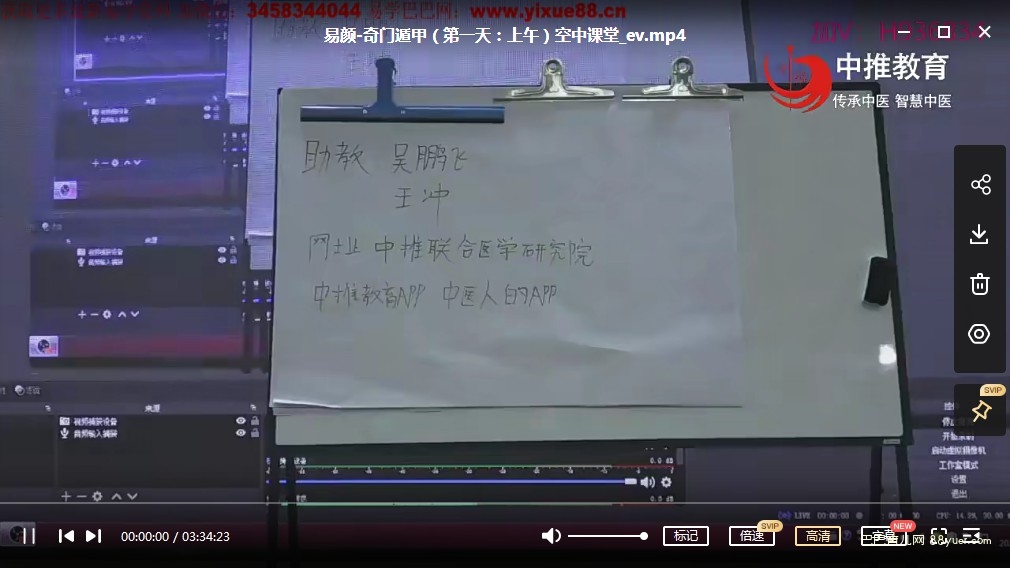 3458344044 易学巴巴网：www.yixue88.cn
易颜-奇门遁甲（第一天：上午）空中课堂_ev.mp4
中推教育
传承中医 智慧中医
助教 吴鹏飞
王冲
网址 中推联合医学研究院
中推教育APP 中医人的APP
来源
视频捕获设备
音频输入捕获
SVIP
开始录制
启动虚拟摄像机
工作室模式
设置
退出
0.0 dB
LIVE 00:00:03
00:00:00 / 03:34:23
标记
倍速
SVIP
高清
字幕
NEW
88yuer.com